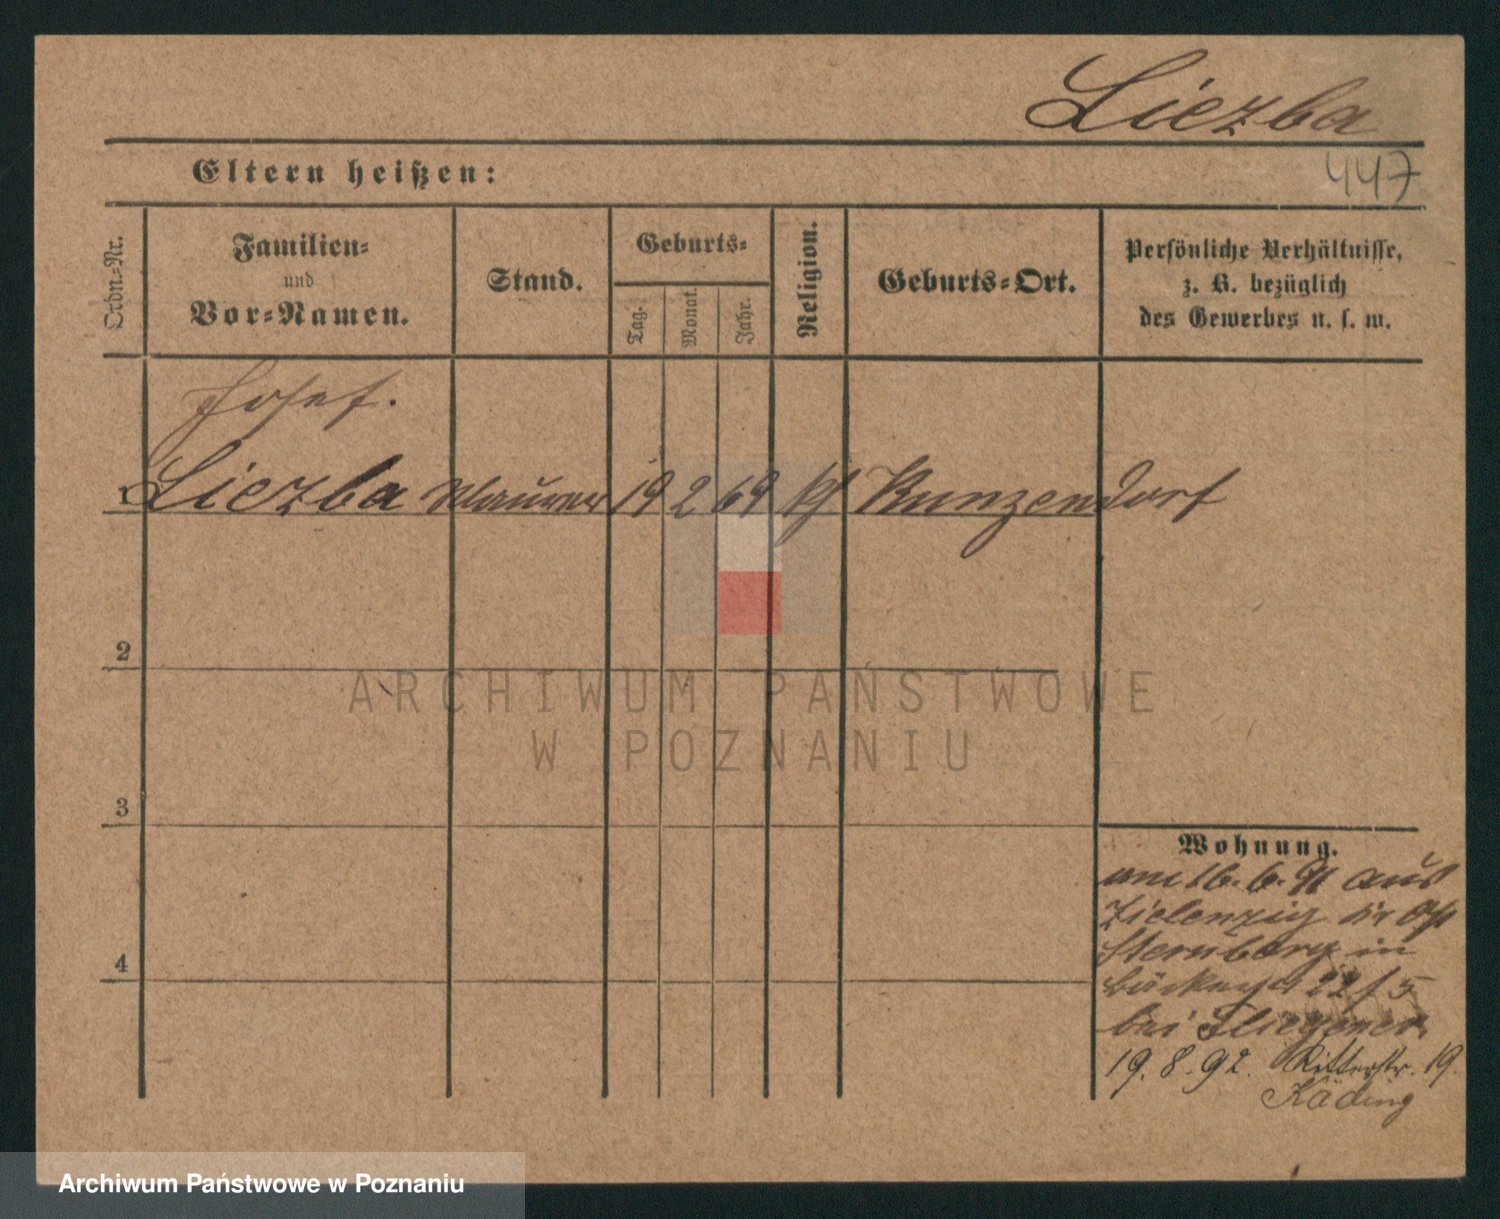 Liczba
447
Eltern heißen:
Ordn.-Nr.
Familien-
und
Vor-Namen.
Stand.
Geburts-
Tag.
Monat.
Jahr.
Religion.
Geburts-Ort.
Persönliche Verhältnisse,
z. B. bezüglich
des Gewerbes u. s. w.
Josef.
1 Liczba Maurer 19 2 69 kt Kunzendorf
2
ARCHIWUM PAŃSTWOWE
W POZNANIU
3
4
Wohnung.
am 16. 6. 91 aus
Zielenzig Kr
Sternberg in
22/5
bei Fliegener
19. 8. 92. Ritterstr. 19.
Käding
Archiwum Państwowe w Poznaniu